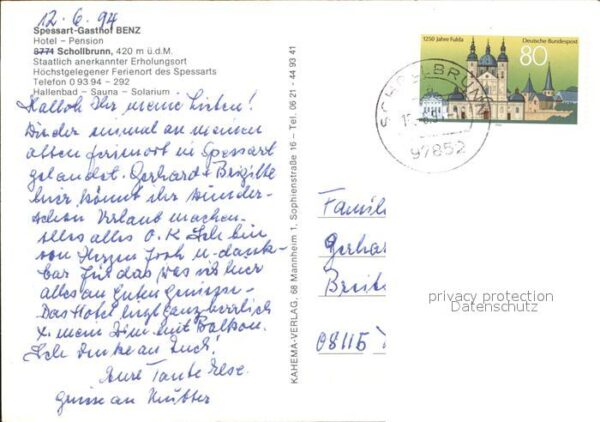 12.6.94
Spessart-Gasthof BENZ
Hotel – Pension
8771 Schollbrunn, 420 m ü.d.M.
Staatlich anerkannter Erholungsort
Höchstgelegener Ferienort des Spessarts
Telefon 0 93 94 – 292
Hallenbad – Sauna – Solarium
Halloh Ihr meine Lieben!
Wieder einmal an meinen
alten Ferienort in Spessart
gelandet. Gerhard + Brigitte
hier könnt ihr wunder-
schön Urlaub machen.
alles alles O.K Ich bin
von Herzen froh u. dank-
bar für das was ich hier
alles an Guten genieße.
Das Hotel liegt ganz herrlich
mein Zim. mit Balkon.
Ich denke an Euch!
Eure Tante Rese
Grüsse an Mutter
KAHEMA-VERLAG, 68 Mannheim 1, Sophienstraße 16 – Tel. 06 21 - 44 93 41
1250 Jahre Fulda
Deutsche Bundespost
80
SCHOLLBRUNN
97852
Famili
Gerhar
Breit
08115
privacy protection
Datenschutz